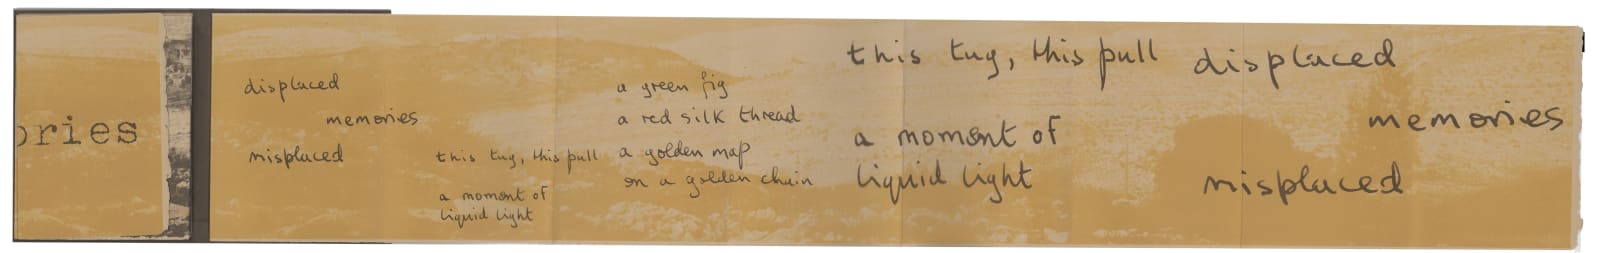 ories
displaced
memories
misplaced
this tug, this pull
a moment of
liquid light
a green fig
a red silk thread
a golden map
on a golden chain
this tug, this pull
a moment of
liquid light
displaced
memories
misplaced